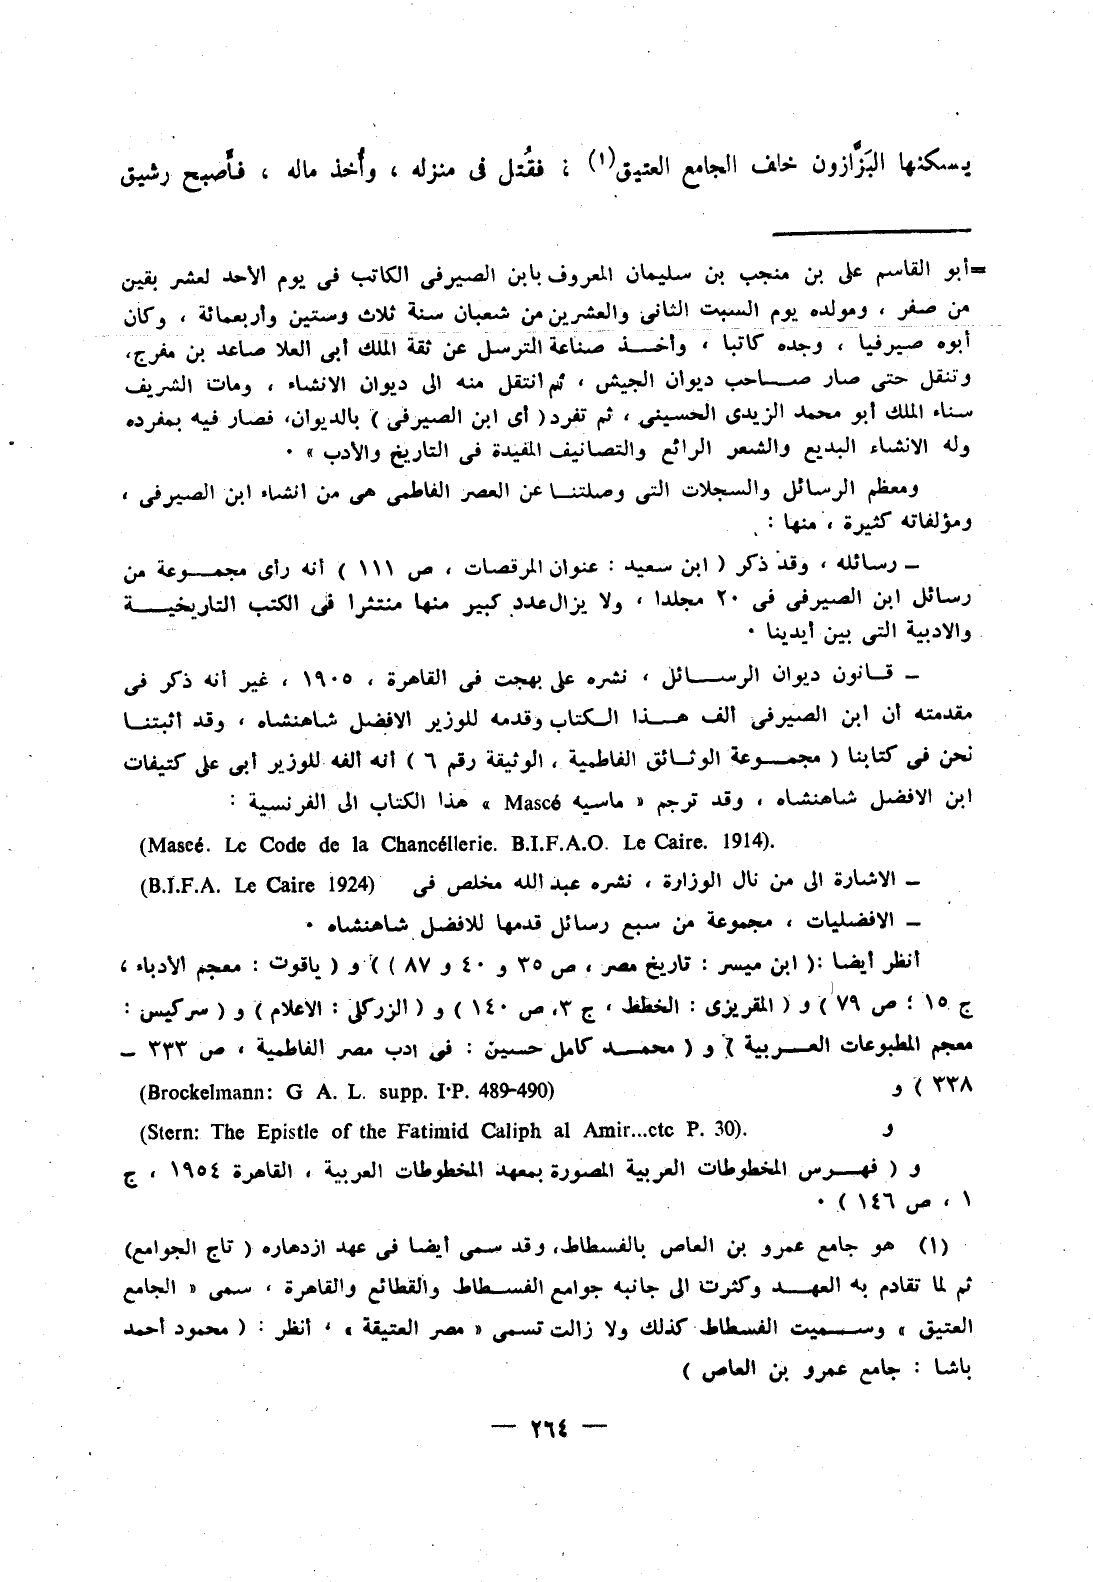 يسكنها البَزَّازون خلف الجامع العتيق(١) ؛ فقُتل فى منزله ، وأُخذ ماله ، فأَصبح رشيق
=أبو القاسم على بن منجب بن سليمان المعروف بابن الصيرفى الكاتب فى يوم الأحد لعشر بقين
من صفر ، ومولده يوم السبت الثانى والعشرين من شعبان سنة ثلاث وستين وأربعمائة ، وكان
أبوه صيرفيا ، وجده كاتبا ، وأخذ صناعة الترسل عن ثقة الملك أبى العلا صاعد بن مفرج،
وتنقل حتى صار صاحب ديوان الجيش ، ثم انتقل منه الى ديوان الانشاء ، ومات الشريف
سناء الملك أبو محمد الزيدى الحسينى ، ثم تفرد ( أى ابن الصيرفى ) بالديوان، فصار فيه بمفرده
وله الانشاء البديع والشعر الرائع والتصانيف المفيدة فى التاريخ والأدب » ٠
ومعظم الرسائل والسجلات التى وصلتنا عن العصر الفاطمى هى من انشاء ابن الصيرفى ،
ومؤلفاته كثيرة ، منها :
ــ رسائله ، وقد ذكر ( ابن سعيد : عنوان المرقصات ، ص ١١١ ) أنه رأى مجموعة من
رسائل ابن الصيرفى فى ٢٠ مجلدا ، ولا يزال عدد كبير منها منتثرا فى الكتب التاريخية
والادبية التى بين أيدينا ٠
ــ قانون ديوان الرسائل ، نشره على بهجت فى القاهرة ، ١٩٠٥ ، غير أنه ذكر فى
مقدمته أن ابن الصيرفى ألف هذا الكتاب وقدمه للوزير الافضل شاهنشاه ، وقد أثبتنا
نحن فى كتابنا ( مجموعة الوثائق الفاطمية ، الوثيقة رقم ٦ ) أنه ألفه للوزير أبى على كتيفات
ابن الافضل شاهنشاه ، وقد ترجم « ماسيه Mascé » هذا الكتاب الى الفرنسية :
(Mascé. Le Code de la Chancéllerie. B.I.F.A.O. Le Caire. 1914).
ــ الاشارة الى من نال الوزارة ، نشره عبد الله مخلص فى (B.I.F.A. Le Caire 1924)
ــ الافضليات ، مجموعة من سبع رسائل قدمها للافضل شاهنشاه ٠
أنظر أيضا :( ابن ميسر : تاريخ مصر ، ص ٣٥ و ٤٠ و ٨٧ ) ) و ( ياقوت : معجم الأدباء ،
ج ١٥ ؛ ص ٧٩ ) و ( المقريزى : الخطط ، ج ٣، ص ١٤٠ ) و ( الزركلى : الاعلام ) و ( سركيس :
معجم المطبوعات العربية ) و ( محمد كامل حسين : فى ادب مصر الفاطمية ، ص ٣٣٣ ــ
٣٣٨ ) و (Brockelmann: G A. L. supp. I·P. 489-490)
و (Stern: The Epistle of the Fatimid Caliph al Amir...etc P. 30).
و ( فهرس المخطوطات العربية المصورة بمعهد المخطوطات العربية ، القاهرة ١٩٥٤ ، ج
١ ، ص ١٤٦ ) ٠
(١) هو جامع عمرو بن العاص بالفسطاط، وقد سمى أيضا فى عهد ازدهاره ( تاج الجوامع)
ثم لما تقادم به العهد وكثرت الى جانبه جوامع الفسطاط والقطائع والقاهرة ، سمى « الجامع
العتيق » وسميت الفسطاط كذلك ولا زالت تسمى « مصر العتيقة » ، أنظر : ( محمود أحمد
باشا : جامع عمرو بن العاص )
— ٢٦٤ —